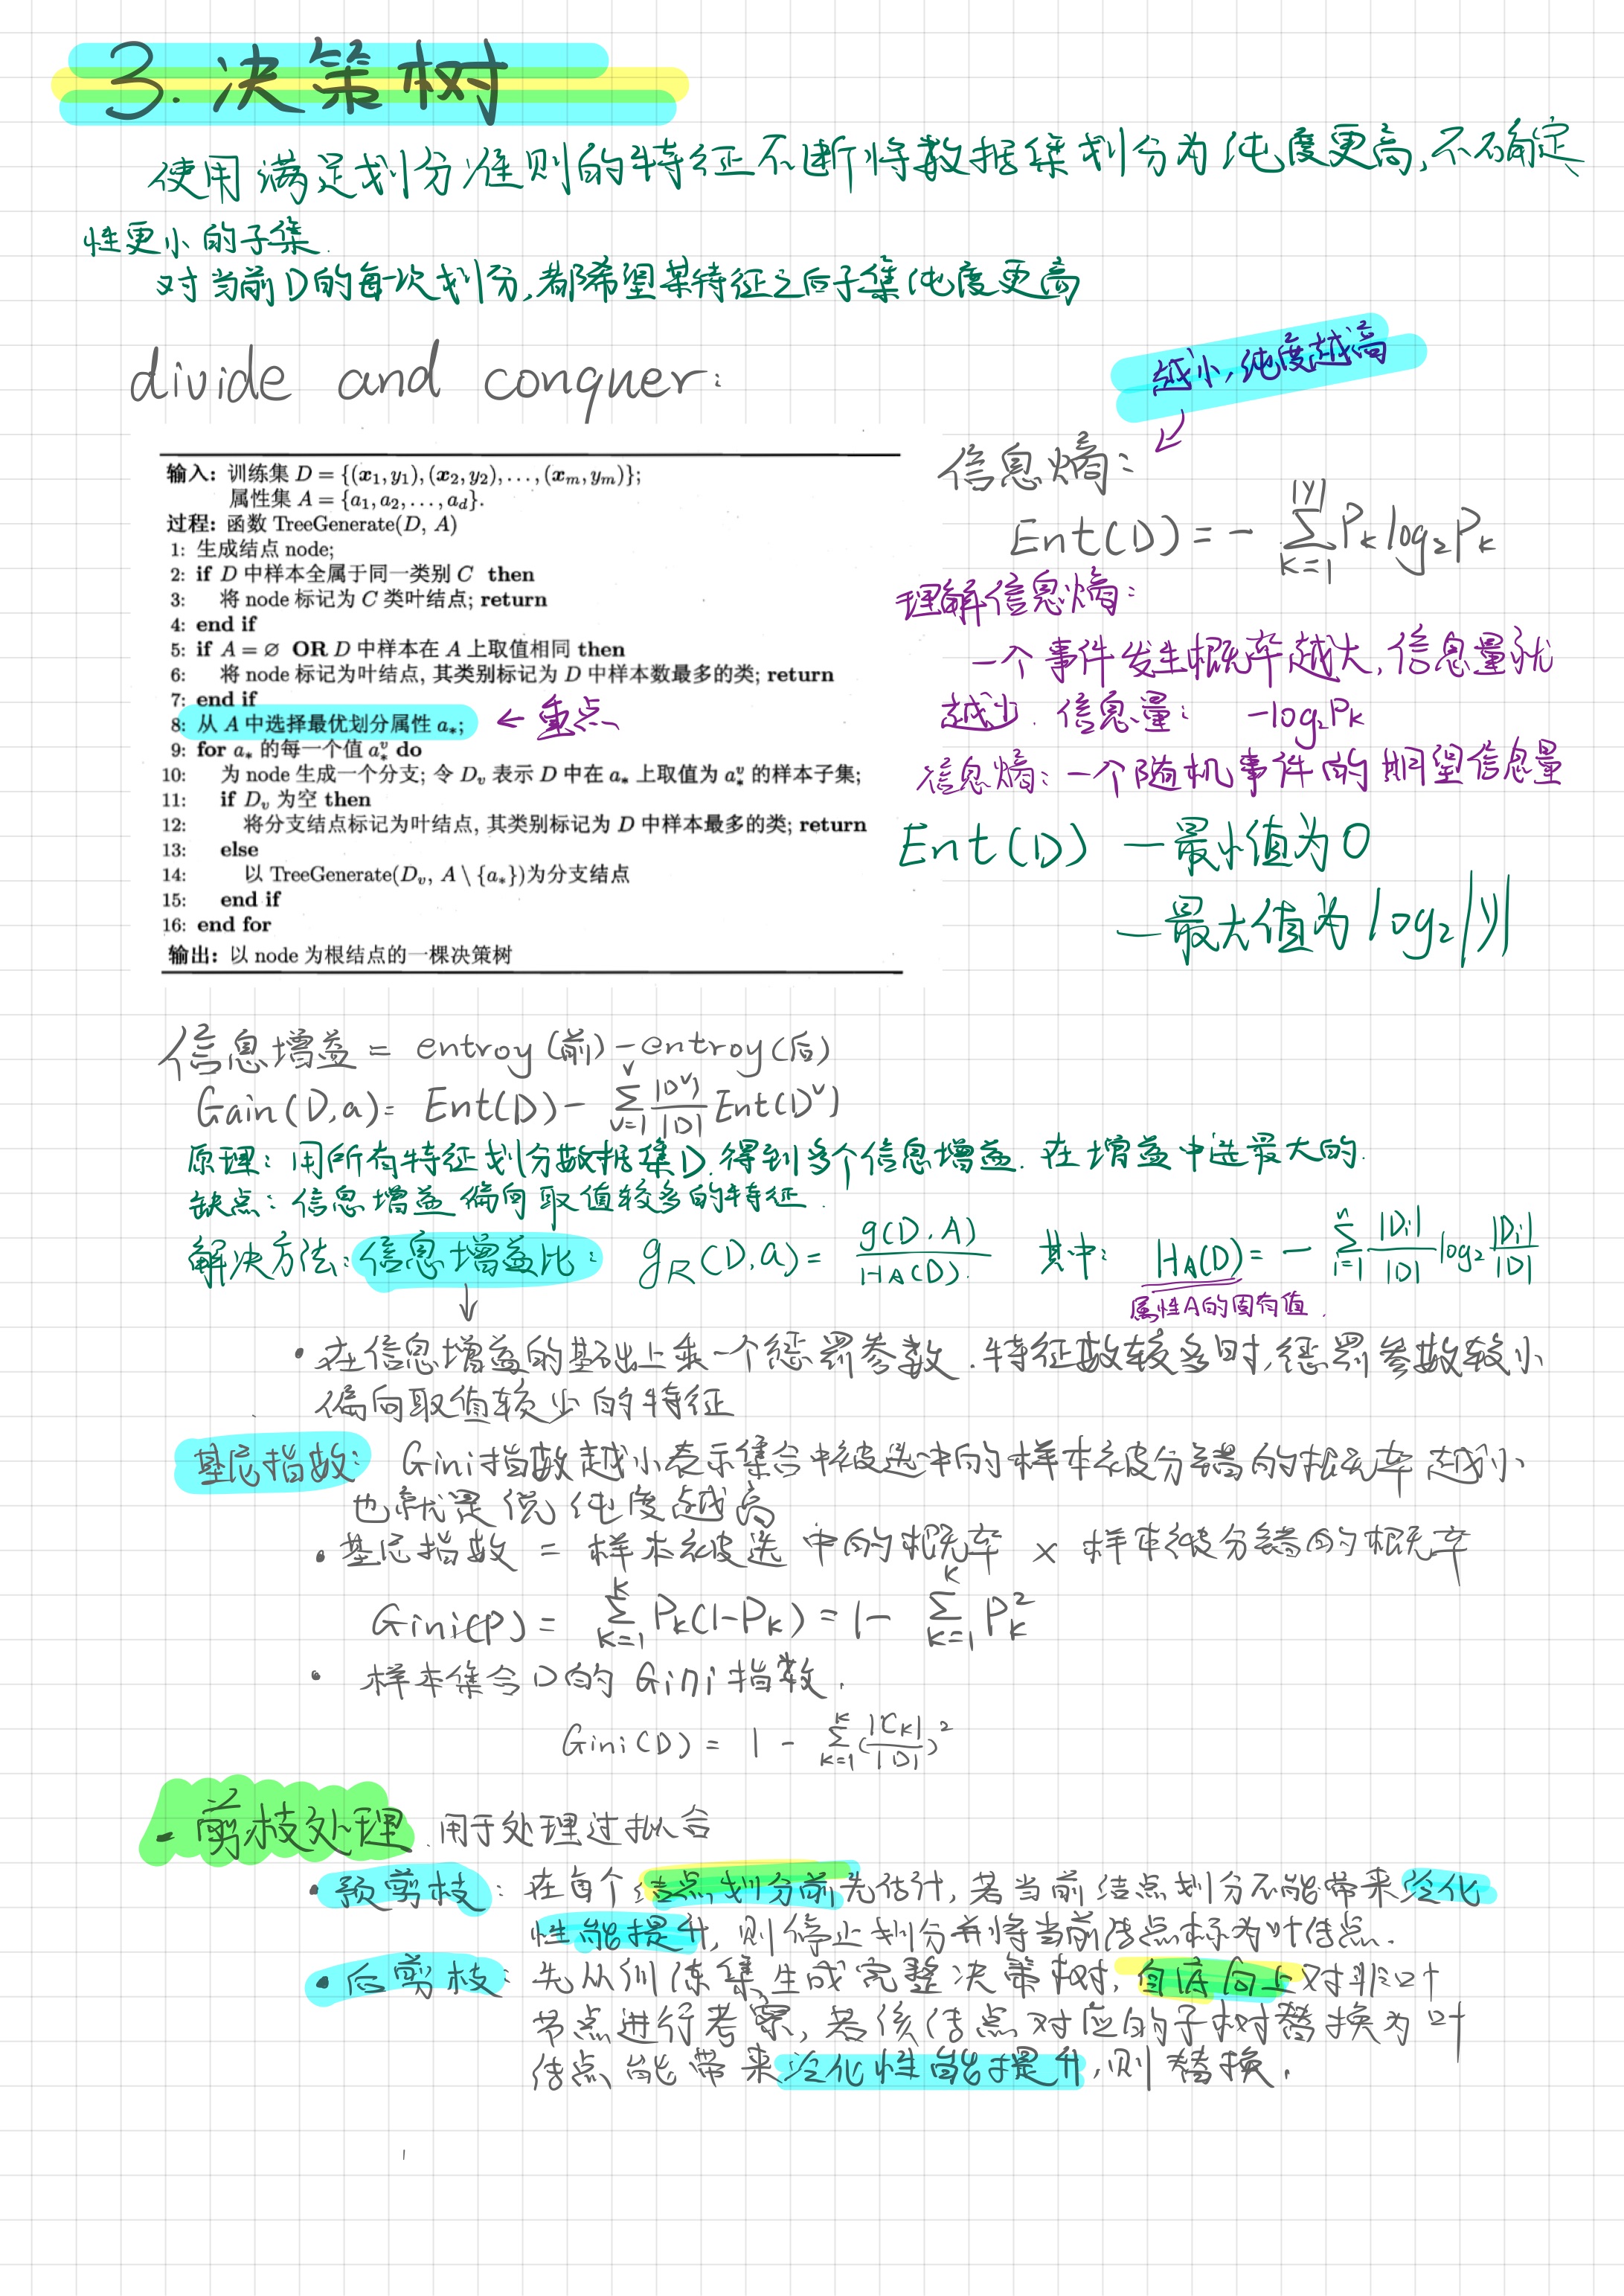 3. 决策树
使用满足划分准则的特征不断将数据集划分为纯度更高,不确定
性更小的子集.
对当前D的每一次划分,都希望某特征之后子集纯度更高
divide and conquer:
越小,纯度越高
输入: 训练集 D = {(x₁, y₁), (x₂, y₂), . . . , (xₘ, yₘ)};
属性集 A = {a₁, a₂, . . . , a_d}.
过程: 函数 TreeGenerate(D, A)
1: 生成结点 node;
2: if D 中样本全属于同一类别 C then
3: 将 node 标记为 C 类叶结点; return
4: end if
5: if A = ∅ OR D 中样本在 A 上取值相同 then
6: 将 node 标记为叶结点, 其类别标记为 D 中样本数最多的类; return
7: end if
8: 从 A 中选择最优划分属性 a_*;
← 重点
9: for a_* 的每一个值 a_*^v do
10: 为 node 生成一个分支; 令 D_v 表示 D 中在 a_* 上取值为 a_*^v 的样本子集;
11: if D_v 为空 then
12: 将分支结点标记为叶结点, 其类别标记为 D 中样本最多的类; return
13: else
14: 以 TreeGenerate(D_v, A \ {a_*})为分支结点
15: end if
16: end for
输出: 以 node 为根结点的一棵决策树
信息熵:
Ent(D) = - ∑_{k=1}^{|y|} P_k log₂P_k
理解信息熵:
一个事件发生概率越大,信息量就
越少. 信息量: -log₂P_k
信息熵: 一个随机事件的期望信息量
Ent(D) — 最小值为0
— 最大值为 log₂|y|
信息增益 = entroy(前) - entroy(后)
Gain(D,a) = Ent(D) - ∑_{v=1}^{V} |D^v|/|D| Ent(D^v)
原理: 用所有特征划分数据集D,得到多个信息增益.在增益中选最大的.
缺点: 信息增益偏向取值较多的特征.
解决方法: 信息增益比: g_R(D,a) = g(D,A)/H_A(D). 其中: H_A(D) = - ∑_{i=1}^{n} |D_i|/|D| log₂ |D_i|/|D|
属性A的固有值.
• 在信息增益的基础上乘一个惩罚参数.特征数较多时,惩罚参数较小
偏向取值较少的特征
基尼指数: Gini指数越小表示集合中被选中的样本被分错的概率越小
也就是说纯度越高
• 基尼指数 = 样本被选中的概率 × 样本被分错的概率
Gini(P) = ∑_{k=1}^{K} P_k(1-P_k) = 1 - ∑_{k=1}^{K} P_k²
• 样本集合D的Gini指数.
Gini(D) = 1 - ∑_{k=1}^{K} (|C_k|/|D|)²
- 剪枝处理.用于处理过拟合
• 预剪枝: 在每个结点划分前先估计,若当前结点划分不能带来泛化
性能提升,则停止划分并将当前结点标为叶结点.
• 后剪枝: 先从训练集生成完整决策树,自底向上对非叶
节点进行考察,若该结点对应的子树替换为叶
结点能带来泛化性能提升,则替换.